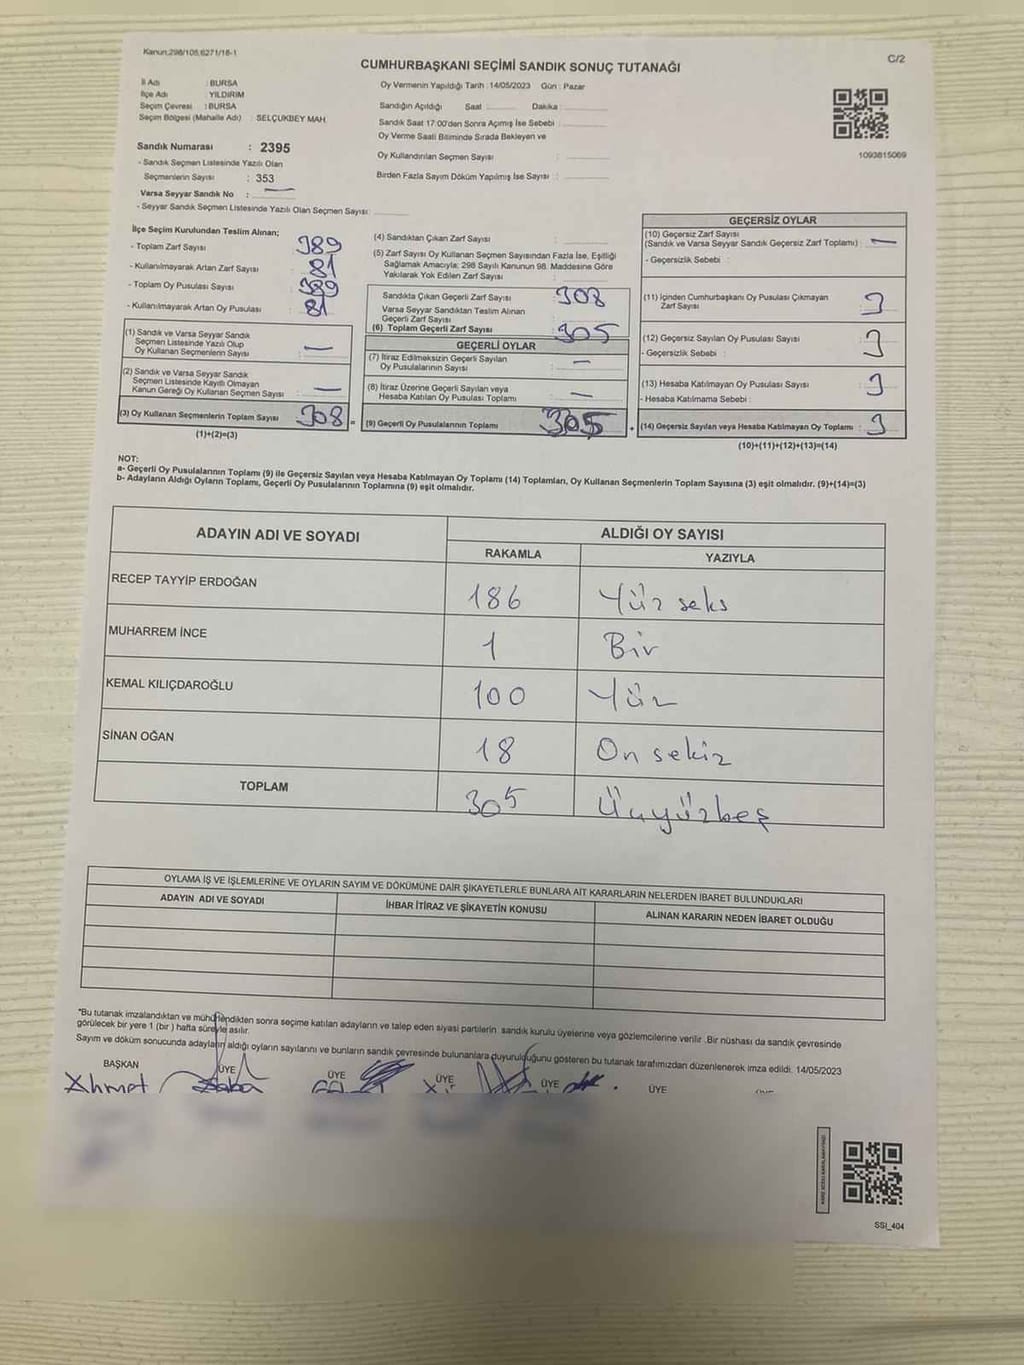 Kanun;298/105,6271/18-1
C/2
CUMHURBAŞKANI SEÇİMİ SANDIK SONUÇ TUTANAĞI
İl Adı : BURSA
İlçe Adı : YILDIRIM
Seçim Çevresi : BURSA
Seçim Bölgesi (Mahalle Adı) : SELÇUKBEY MAH.
Oy Vermenin Yapıldığı Tarih : 14/05/2023 Gün : Pazar
Sandığın Açıldığı Saat : Dakika :
Sandık Saat 17:00'den Sonra Açılmış İse Sebebi :
Oy Verme Saati Bitiminde Sırada Bekleyen ve
Oy Kullandırılan Seçmen Sayısı :
Birden Fazla Sayım Döküm Yapılmış İse Sayısı :
1093815069
Sandık Numarası : 2395
- Sandık Seçmen Listesinde Yazılı Olan
Seçmenlerin Sayısı : 353
Varsa Seyyar Sandık No : —
- Seyyar Sandık Seçmen Listesinde Yazılı Olan Seçmen Sayısı:
İlçe Seçim Kurulundan Teslim Alınan;
- Toplam Zarf Sayısı 389
- Kullanılmayarak Artan Zarf Sayısı 81
- Toplam Oy Pusulası Sayısı 389
- Kullanılmayarak Artan Oy Pusulası 81
(1) Sandık ve Varsa Seyyar Sandık
Seçmen Listesinde Yazılı Olup
Oy Kullanan Seçmenlerin Sayısı —
(2) Sandık ve Varsa Seyyar Sandık
Seçmen Listesinde Kayıtlı Olmayan
Kanun Gereği Oy Kullanan Seçmen Sayısı —
(3) Oy Kullanan Seçmenlerin Toplam Sayısı : 308 =
(1)+(2)=(3)
(4) Sandıktan Çıkan Zarf Sayısı :
(5) Zarf Sayısı Oy Kullanan Seçmen Sayısından Fazla İse, Eşitliği
Sağlamak Amacıyla; 298 Sayılı Kanunun 98. Maddesine Göre
Yakılarak Yok Edilen Zarf Sayısı :
Sandıkta Çıkan Geçerli Zarf Sayısı : 308
Varsa Seyyar Sandıktan Teslim Alınan
Geçerli Zarf Sayısı
(6) Toplam Geçerli Zarf Sayısı : 305
GEÇERLİ OYLAR
(7) İtiraz Edilmeksizin Geçerli Sayılan
Oy Pusulalarının Sayısı : —
(8) İtiraz Üzerine Geçerli Sayılan veya
Hesaba Katılan Oy Pusulası Toplamı : —
(9) Geçerli Oy Pusulalarının Toplamı : 305 +
GEÇERSİZ OYLAR
(10) Geçersiz Zarf Sayısı
(Sandık ve Varsa Seyyar Sandık Geçersiz Zarf Toplamı) : —
- Geçersizlik Sebebi :
(11) İçinden Cumhurbaşkanı Oy Pusulası Çıkmayan
Zarf Sayısı : 3
(12) Geçersiz Sayılan Oy Pusulası Sayısı : 3
- Geçersizlik Sebebi :
(13) Hesaba Katılmayan Oy Pusulası Sayısı : 3
- Hesaba Katılmama Sebebi :
(14) Geçersiz Sayılan veya Hesaba Katılmayan Oy Toplamı : 3
(10)+(11)+(12)+(13)=(14)
NOT:
a- Geçerli Oy Pusulalarının Toplamı (9) ile Geçersiz Sayılan veya Hesaba Katılmayan Oy Toplamı (14) Toplamları, Oy Kullanan Seçmenlerin Toplam Sayısına (3) eşit olmalıdır. (9)+(14)=(3)
b- Adayların Aldığı Oyların Toplamı, Geçerli Oy Pusulalarının Toplamına (9) eşit olmalıdır.
ADAYIN ADI VE SOYADI ALDIĞI OY SAYISI
RAKAMLA YAZIYLA
RECEP TAYYİP ERDOĞAN 186 Yüz seks
MUHARREM İNCE 1 Bir
KEMAL KILIÇDAROĞLU 100 Yüz
SİNAN OĞAN 18 On sekiz
TOPLAM 305 Üçyüzbeş
OYLAMA İŞ VE İŞLEMLERİNE VE OYLARIN SAYIM VE DÖKÜMÜNE DAİR ŞİKAYETLERLE BUNLARA AİT KARARLARIN NELERDEN İBARET BULUNDUKLARI
ADAYIN ADI VE SOYADI İHBAR İTİRAZ VE ŞİKAYETİN KONUSU ALINAN KARARIN NEDEN İBARET OLDUĞU
*Bu tutanak imzalandıktan ve mühürlendikten sonra seçime katılan adayların ve talep eden siyasi partilerin sandık kurulu üyelerine veya gözlemcilerine verilir .Bir nüshası da sandık çevresinde
görülecek bir yere 1 (bir ) hafta süreyle asılır.
Sayım ve döküm sonucunda adayların aldığı oyların sayılarını ve bunların sandık çevresinde bulunanlara duyurulduğunu gösteren bu tutanak tarafımızdan düzenlenerek imza edildi. 14/05/2023
BAŞKAN ÜYE ÜYE ÜYE ÜYE ÜYE
Ahmet
SSI_404